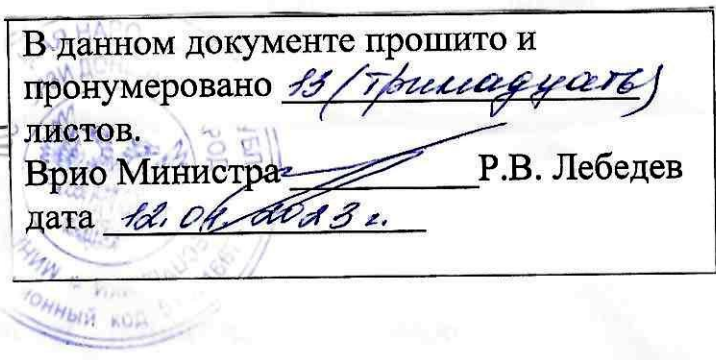 В данном документе прошито и
пронумеровано 13 (тринадцать)
листов.
Врио Министра Р.В. Лебедев
дата 12.04.2023 г.